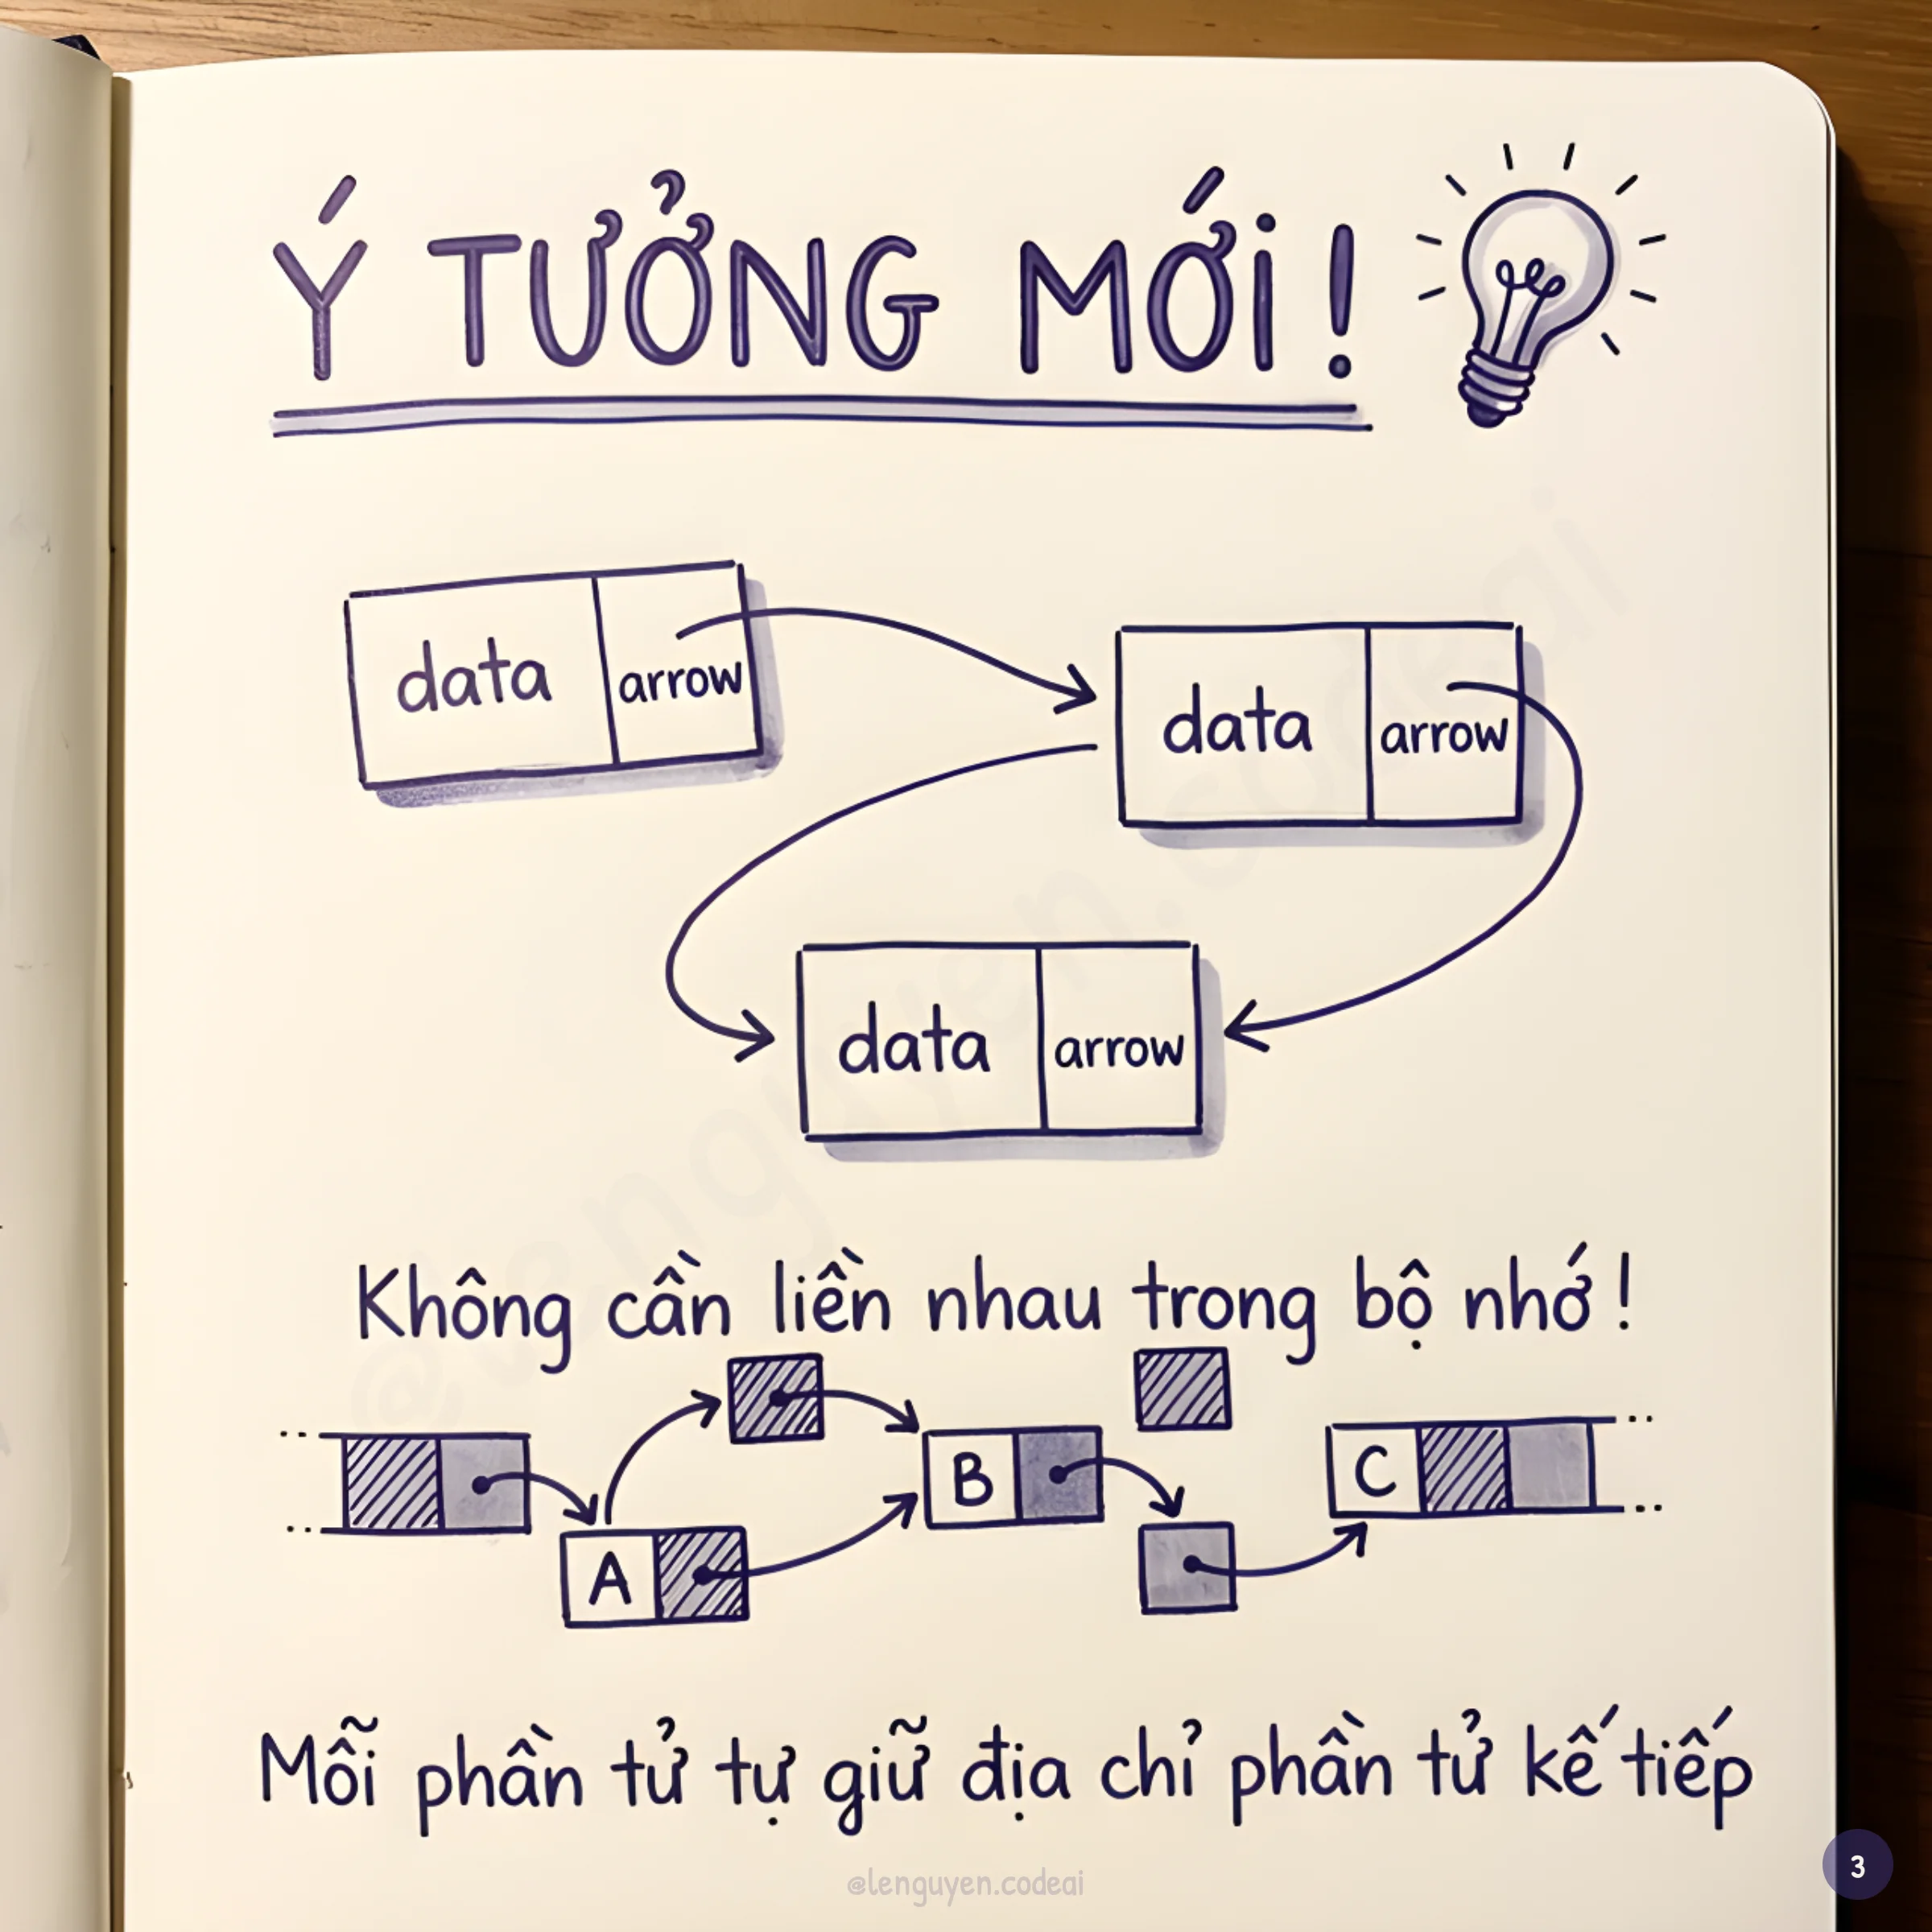 Ý TƯỞNG MỚi !
data arrow
data arrow
data arrow
Không cần liền nhau trong bộ nhớ !
A
B
C
Mỗi phần tử tự giữ địa chỉ phần tử kế tiếp
@lenguyen.codeai
3
@lenguyen.codeai